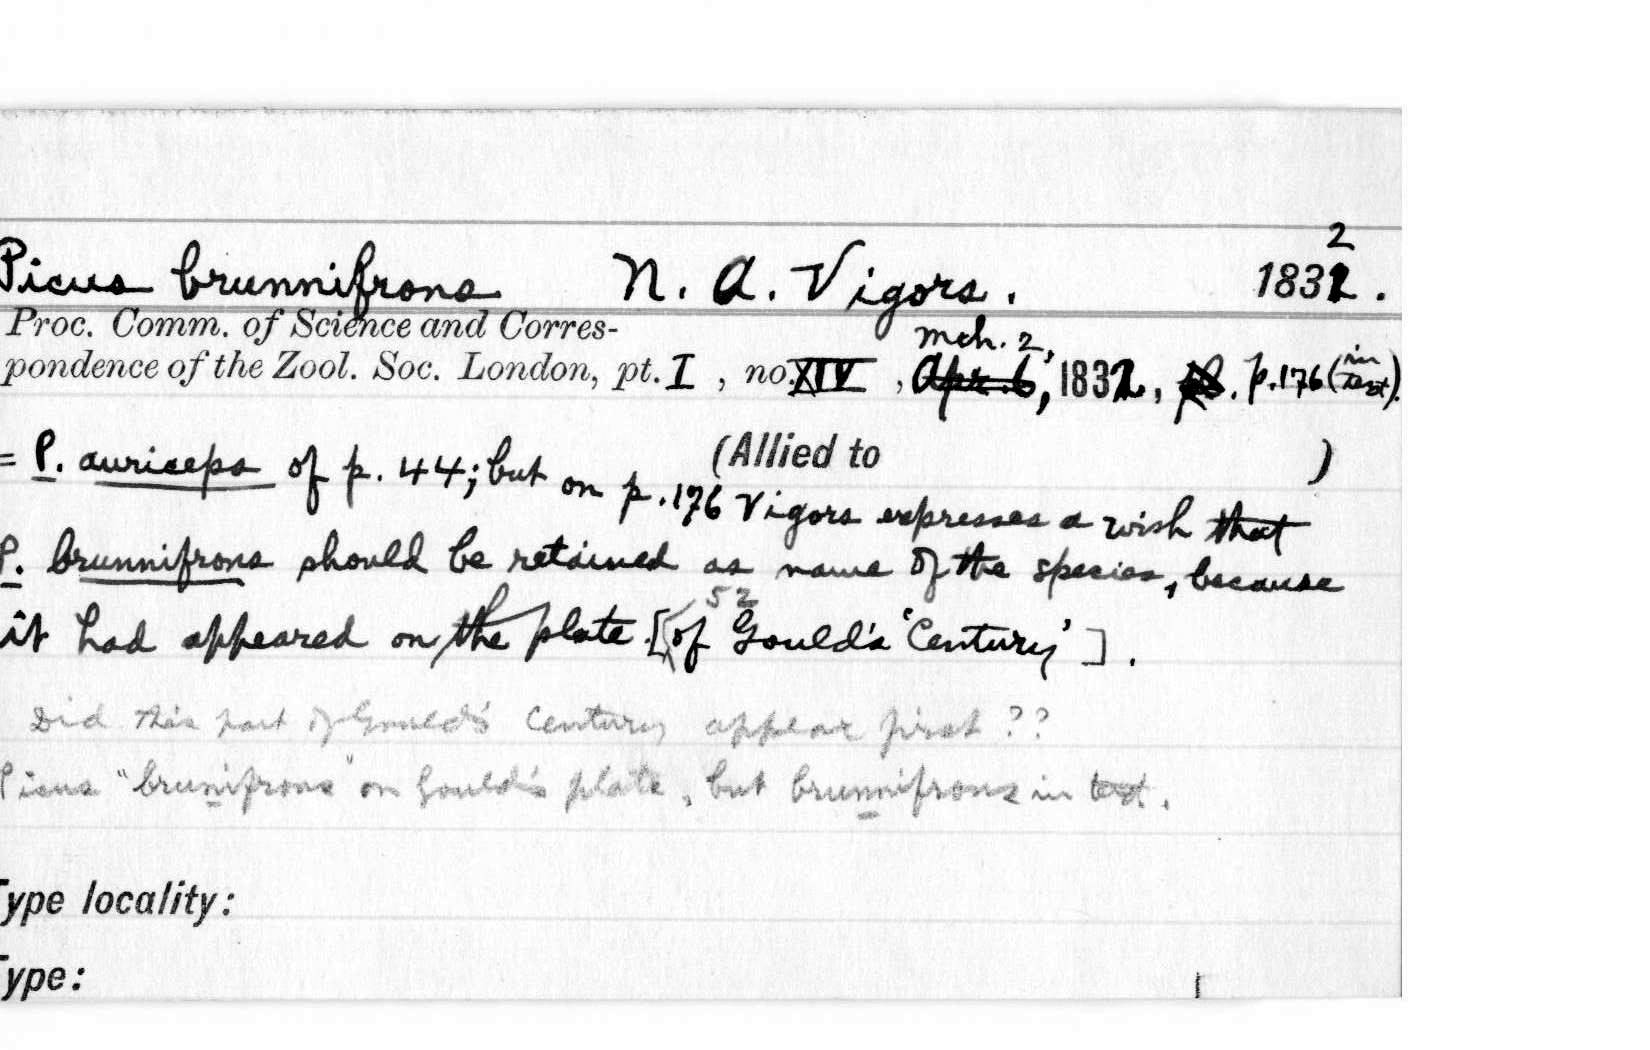 Picus brunnifrons N. A. Vigors. 1832.
2
Proc. Comm. of Science and Corres-
mch. 2,
pondence of the Zool. Soc. London, pt. I , no. XIV , Apr. 6, 1832, p. 176 (in text).
= P. auriceps of p. 44; but on p. 176 Vigors expresses a wish that
(Allied to )
P. brunnifrons should be retained as name of the species, because
52
it had appeared on the plate [of Gould's 'Century'].
Did this part of Gould's Century appear first ??
Picus "brunifrons" on Gould's plate, but brunnifrons in text.
Type locality:
Type: